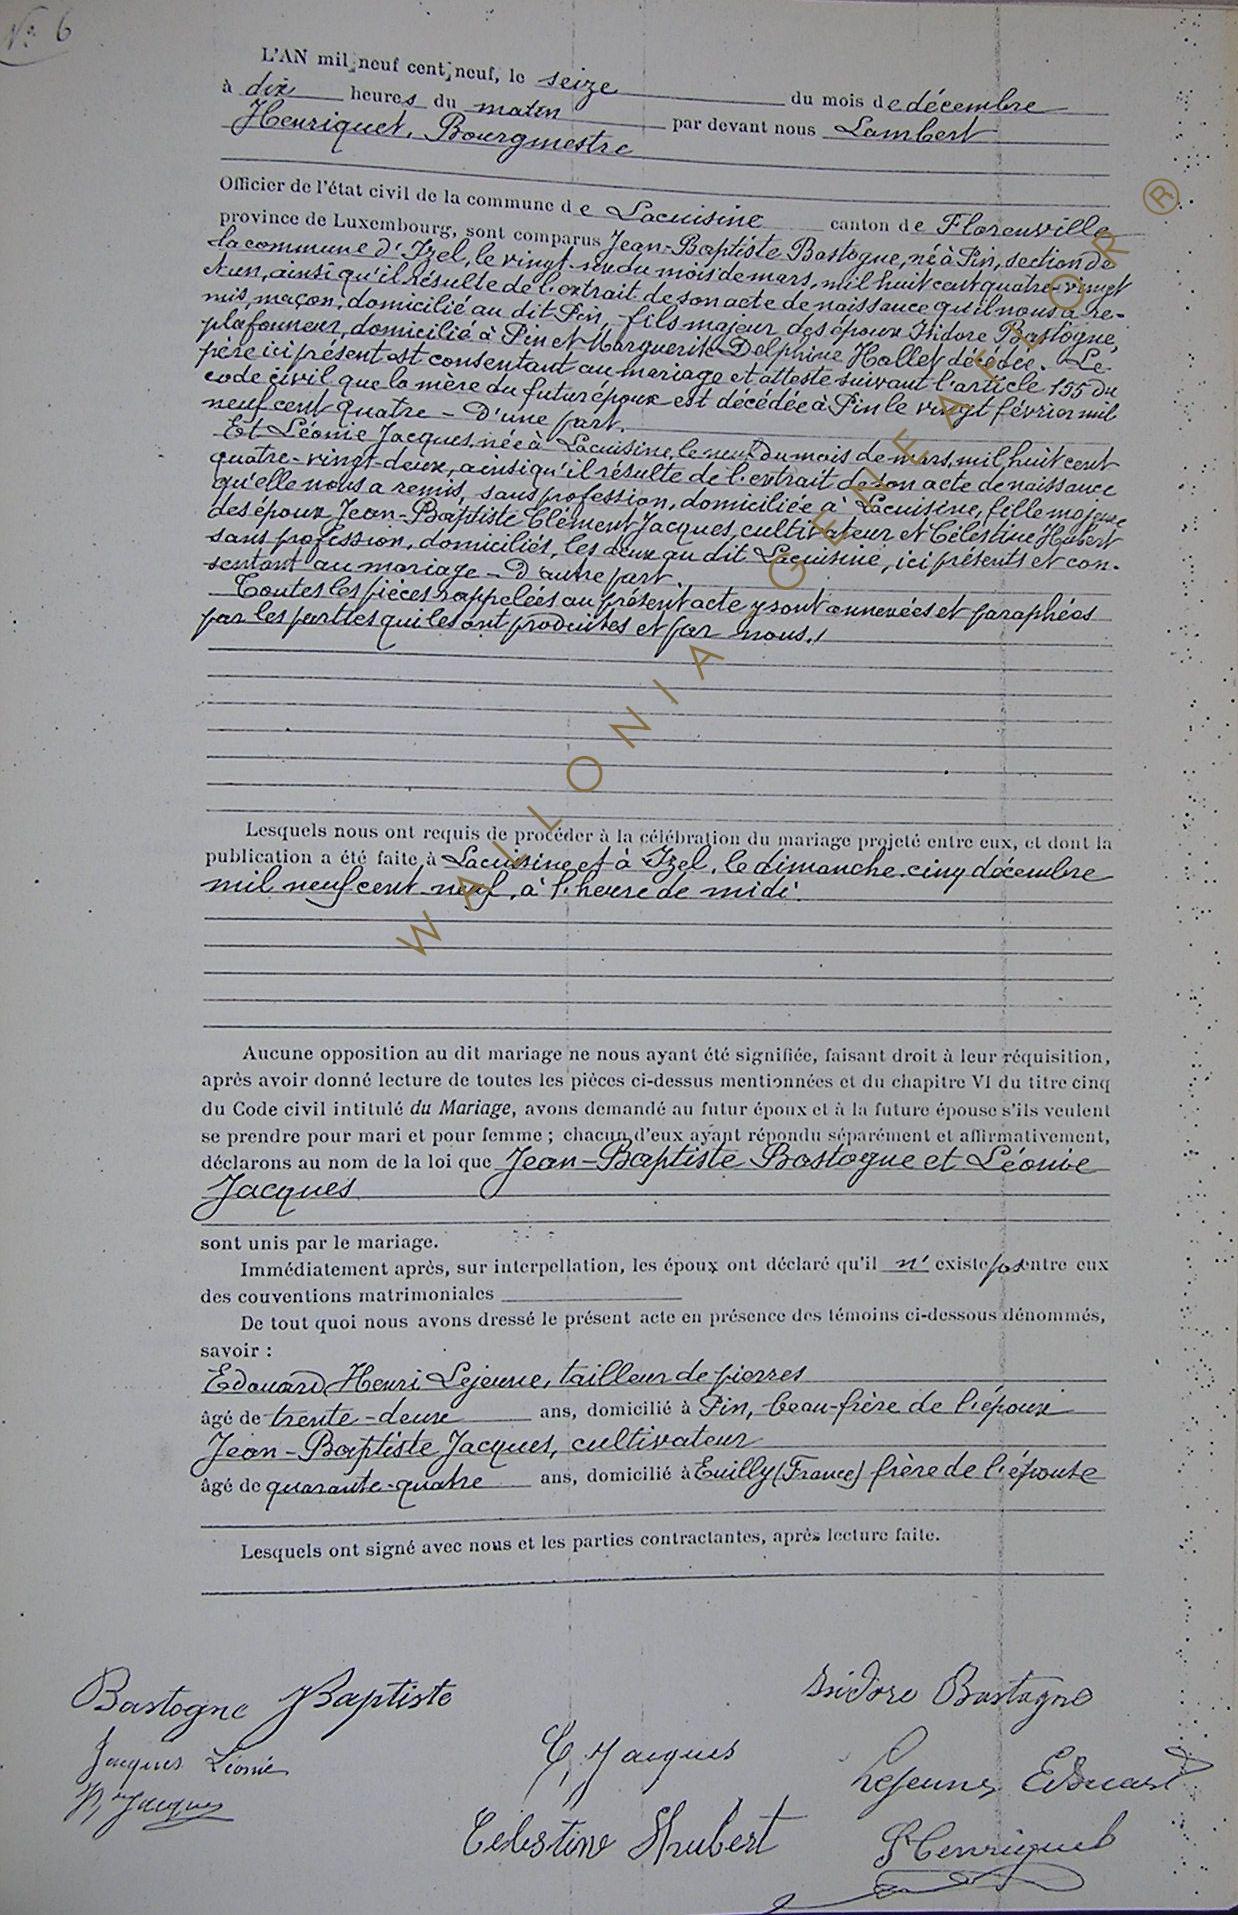 N° 6
L'AN mil neuf cent neuf, le seize du mois de décembre
à dix heures du matin par devant nous Lambert
Henriquet, Bourgmestre
Officier de l'état civil de la commune de Lacuisine canton de Florenville
province de Luxembourg, sont comparus Jean-Baptiste Bastogne, né à Pin, section de
la commune d'Izel, le vingt-un du mois de mars, mil huit cent quatre-vingt
et un, ainsi qu'il résulte de l'extrait de son acte de naissance qu'il nous a re-
mis, maçon, domicilié au dit Pin, fils majeur des époux Isidore Bastogne,
plafonneur, domicilié à Pin et Marguerite Delphine Hallet décédée. Le
père ici présent est consentant au mariage et atteste suivant l'article 155 du
code civil que la mère du futur époux est décédée à Pin le vingt février mil
neuf cent quatre - D'une part.
Et Léonie Jacques, née à Lacuisine, le neuf du mois de mars, mil huit cent
quatre-vingt-deux, ainsi qu'il résulte de l'extrait de son acte de naissance
qu'elle nous a remis, sans profession, domiciliée à Lacuisine, fille majeure
des époux Jean-Baptiste Clément Jacques, cultivateur et Célestine Hubert
sans profession, domiciliés, les deux au dit Lacuisine, ici présents et con-
sentant au mariage - D'autre part.
Toutes les pièces rappelées au présent acte y sont annexées et paraphées
par les parties qui les ont produites et par nous.
Lesquels nous ont requis de procéder à la célébration du mariage projeté entre eux, et dont la
publication a été faite à Lacuisine et à Izel, le dimanche cinq décembre
mil neuf cent neuf, à l'heure de midi.
Aucune opposition au dit mariage ne nous ayant été signifiée, faisant droit à leur réquisition,
après avoir donné lecture de toutes les pièces ci-dessus mentionnées et du chapitre VI du titre cinq
du Code civil intitulé du Mariage, avons demandé au futur époux et à la future épouse s'ils veulent
se prendre pour mari et pour femme ; chacun d'eux ayant répondu séparément et affirmativement,
déclarons au nom de la loi que Jean-Baptiste Bastogne et Léonie
Jacques
sont unis par le mariage.
Immédiatement après, sur interpellation, les époux ont déclaré qu'il n' existe pas entre eux
des conventions matrimoniales
De tout quoi nous avons dressé le présent acte en présence des témoins ci-dessous dénommés,
savoir :
Edouard Henri Lejeune, tailleur de pierres
âgé de trente-deux ans, domicilié à Pin, beau-frère de l'époux
Jean-Baptiste Jacques, cultivateur
âgé de quarante-quatre ans, domicilié à Euilly (France) frère de l'épouse
Lesquels ont signé avec nous et les parties contractantes, après lecture faite.
Bastogne JBaptiste Isidore Bastogne
Jacques Léonie C. Jacques Lejeune Edouard
Jacques Célestine Hubert Henriquet
WALLONIA GENEAFLOR ®